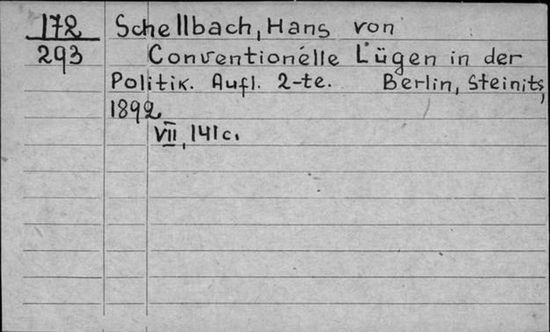 172
293
Schellbach, Hans von
Conventionelle Lügen in der
Politik. Aufl. 2-te. Berlin, Steinits,
1892.
VII, 141 c.